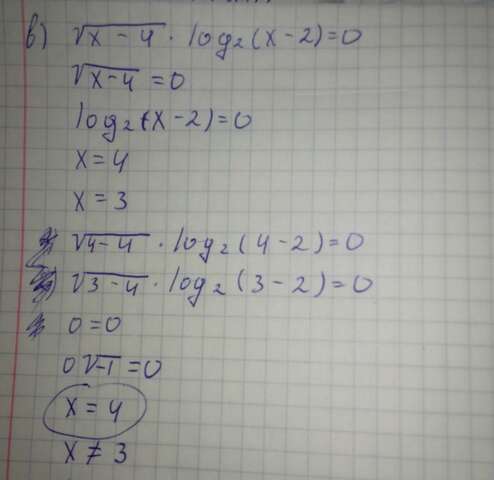 в) √x-4 · log₂(x-2)=0
√x-4 =0
log₂(x-2)=0
x=4
x=3
√4-4 · log₂(4-2)=0
√3-4 · log₂(3-2)=0
0=0
0√-1=0
x=4
x≠3